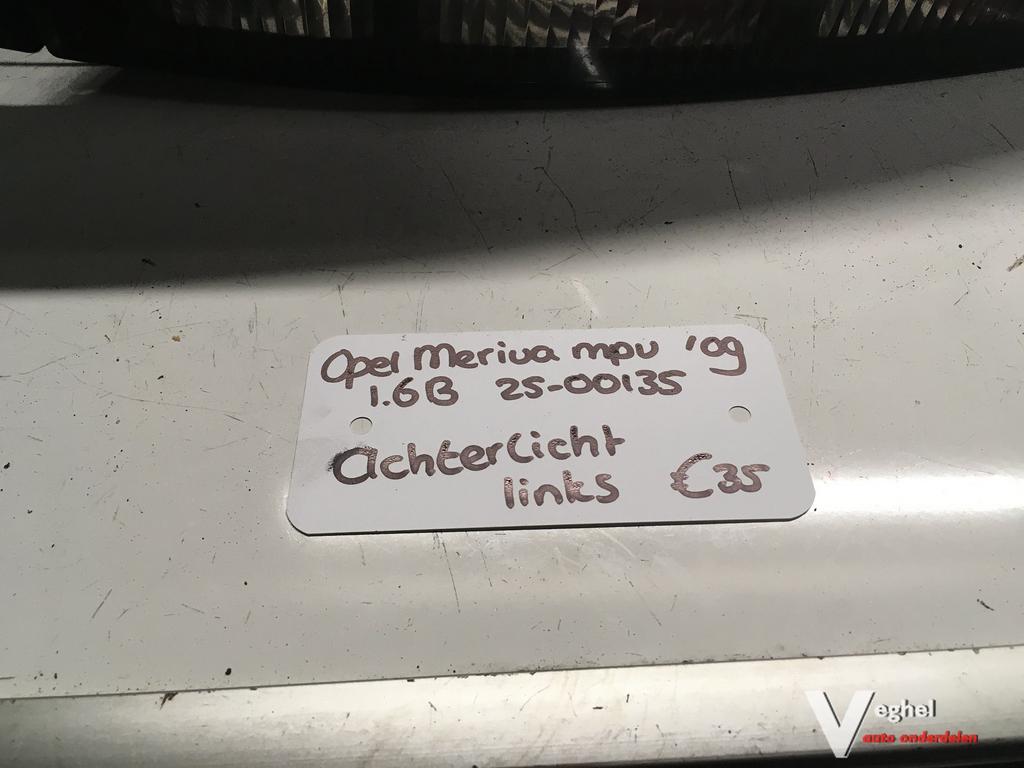 Opel Meriva mpv '09
1.6B 25-00135
achterlicht
links €35
Veghel
auto onderdelen